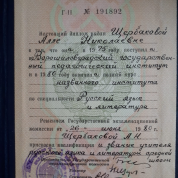 Г-II № 191892
Настоящий диплом выдан Щербаковой
Алле Николаевне
в том, что она в 1975 году поступила в
Ворошиловградский государственный
педагогический институт
и в 1980 году окончила полный курс
названного института
по специальности Русский язык
и литература
Решением Государственной экзаменационной
комиссии от 26 июня 1980 г.
Щербаковой А.Н.
присвоена квалификация и звание учителя
русского языка и литературы средней
школы